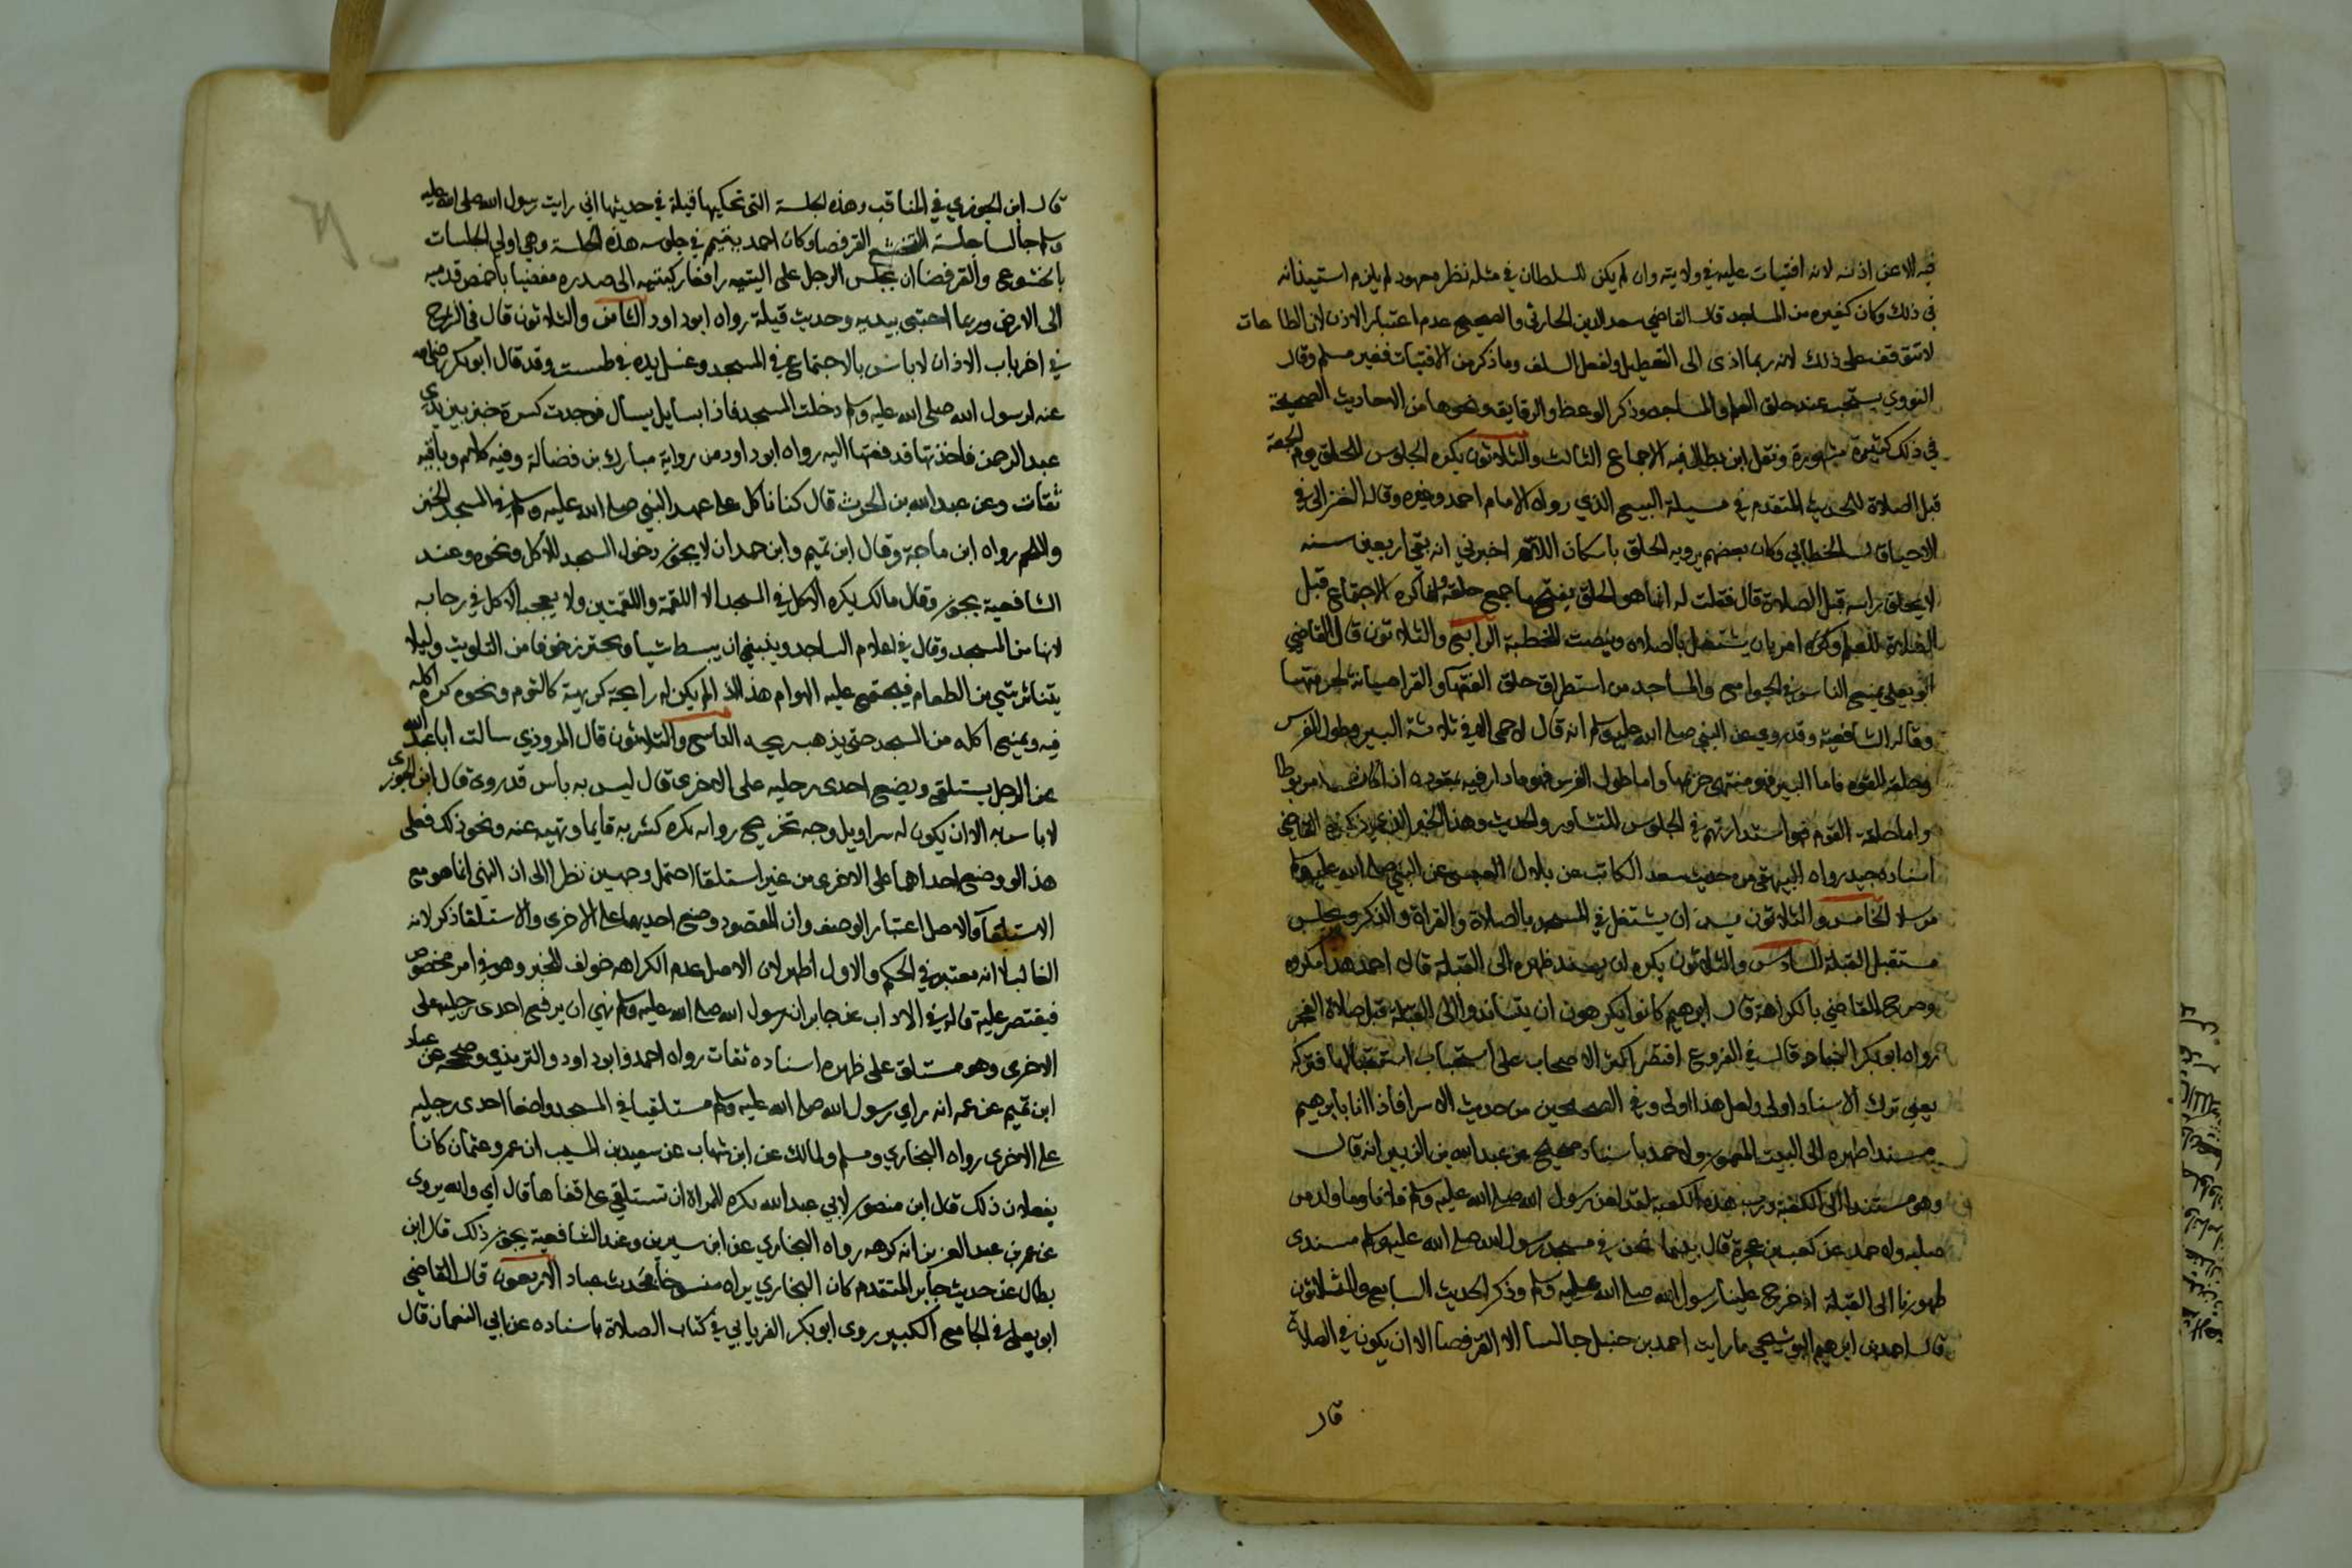 فيه الا عن اذنه لانه افتيات عليه في ولايته وان لم يكن للسلطان في مثله نظر معهود لم يلزم استيذانه
في ذلك وكان كغيره من المساجد قال القاضي سعد الدين الحارثي والصحيح عدم اعتبار الاذن لان الطاعات
لا تتوقف على ذلك لانه ربما ادى الى التعطيل ولفعل السلف وما ذكر من الافتيات فغير مسلم وقال
النووي يستحب عقد حلق العلم في المساجد وذكر الوعظ والرقايق ونحوها من الاحاديث الصحيحة
في ذلك كثيرة مشهورة ونقل ابن بطال فيه الاجماع الثالث والثلاثون يكره الجلوس للحلق يوم الجمعة
قبل الصلاة للحديث المتقدم في مسيلة البيع الذي رواه الامام احمد وغيره وقاله الغزالي في
الاحيا قال الخطابي وكان بعضهم يرويه الحلق باسكان اللام اخبرني انه بقي اربعين سنه
لا يحلق راسه قبل الصلاة قال فقلت له انما هو الحلق بفتحها جمع حلقة وانما كره الاجتماع قبل
الصلاة للعلم وكره امر بان يشتغل بالصلاه وينصت للخطبة الرابع والثلاثون قال القاضي
ابو يعلى يمنع الناس في الجوامع والمساجد من استطراق حلق الفقهآ والقرا صيانة لحرمتها
وقاله الشافعية وقد روي عن النبي صلى الله عليه وسلم انه قال لا حمى الا في ثلاثة البير وطول الفرس
وحلقة القوم فاما البير فهو منتهى حريمها واما طول الفرس فهو ما دار فيه بمقوده اذا كان مربوطا
واما حلقة القوم فهو استدارتهم في الجلوس للتشاور والحديث وهذا الخبر الذي ذكره القاضي
اسناده جيد رواه البيهقي من حديث سعد الكاتب عن بلال العبسي عن النبي صلى الله عليه وسلم
مرسلا الخامس والثلاثون يسن ان يشتغل في المسجد بالصلاة والقراة والذكر ويجلس
مستقبل القبلة السادس والثلاثون يكره ان يسند ظهره الى القبلة قال احمد هذا مكروه
وصرح القاضي بالكراهة قال ابرهيم كانوا يكرهون ان يتساندوا الى القبلة قبل صلاة الفجر
رواه ابو بكر النجاد قال في الفروع اقتصر اكثر الاصحاب على استحباب استقبالها فتركه
يعني ترك الاسناد اولى ولعل هذا اولى وفي الصحيحين من حديث الاسرا فاذا انا بابرهيم
مسندا ظهره الى البيت المعمور ولاحمد باسناد صحيح عن عبد الله بن الزبير انه قال
وهو مستندا الى الكعبة ورب هذه الكعبة لقد لعن رسول الله صلى الله عليه وسلم فلانا وما ولد من
صلبه ولاحمد عن كعب بن عجرة قال بينما نحن في مسجد رسول الله صلى الله عليه وسلم مسندي
ظهورنا الى القبلة اذ خرج علينا رسول الله صلى الله عليه وسلم وذكر الحديث السابع والثلاثون
قال احمد بن ابرهيم البوشنجي ما رايت احمد بن حنبل جالسا الا القرفصا الا ان يكون في الصلاة
قال
قال ابن الجوزي في المناقب وهذه الجلسة التي تحكيها قيلة في حديثها اني رايت رسول الله صلى الله عليه
وسلم جالسا جلسة المتخشع القرفصا وكان احمد يتيمم في جلوسه هذه الجلسة وهي اولى الجلسات
بالخشوع والقرفصا ان يجلس الرجل على اليتيه رافعا ركبتيه الى صدره مفضيا باخمص قدميه
الى الارض وربما احتبى بيديه وحديث قيلة رواه ابو داود الثامن والثلاثون قال في الشرح
في اخر باب الاذان لا باس بالاجتماع في المسجد وغسل يده في طست وقد قال ابو بكر رضي الله
عنه لرسول الله صلى الله عليه وسلم دخلت المسجد فاذا بسايل يسأل فوجدت كسرة خبز بين يدي
عبد الرحمن فاخذتها فدفعتها اليه رواه ابو داود من رواية مبارك بن فضالة وفيه كلام وباقيه
ثقات وعن عبد الله بن الحرث قال كنا ناكل على عهد النبي صلى الله عليه وسلم في المسجد الخبز
واللحم رواه ابن ماجة وقال ابن تميم وابن حمدان لا يجوز دخول المسجد للاكل ونحوه وعند
الشافعية يجوز وقال مالك يكره الاكل في المسجد الا اللقمة واللقمتين ولا يعجبه الاكل في رحابه
لانها من المسجد وقال في اعلام الساجد وينبغي ان يبسط شيا ويحترز خوفا من التلويث وليلا
يتناثر شي من الطعام فيجتمع عليه الهوام هذا اذا لم يكن له رايحة كريهة كالثوم ونحوه كره اكله
فيه ويمنع اكله من المسجد حتى يذهب ريحه التاسع والثلاثون قال المروذي سالت ابا عبد الله
عن الرجل يستلقي ويضع احدى رجليه على الاخرى قال ليس به باس قد روي قال ابن الجوزي
لا باس به الا ان يكون له سراويل وجه تخريج رواية يكره كشربه قايما ونهيه عنه ونحو ذلك فعلى
هذا لو وضع احداهما على الاخرى من غير استلقا احتمل وجهين نظرا الى ان النهي انما هو مع
الاستلقآ والاصل اعتبار الوصف وان المقصود وضع احديهما على الاخرى والاستلقا ذكر لانه
الغالب لا انه معتبر في الحكم والاول اظهر لان الاصل عدم الكراهه خولف للخبر وهو في امر مخصوص
فيقتصر عليه قاله في الاداب عن جابر ان رسول الله صلى الله عليه وسلم نهى ان يرفع احدى رجليه على
الاخرى وهو مستلق على ظهره اسناده ثقات رواه احمد وابو داود والترمذي وصححه عن عباد
ابن تميم عن عمه انه راى رسول الله صلى الله عليه وسلم مستلقيا في المسجد واضعا احدى رجليه
على الاخرى رواه البخاري ومسلم ولمالك عن ابن شهاب عن سعيد بن المسيب ان عمر وعثمان كانا
يفعلان ذلك قال ابن منصور لابي عبد الله يكره للمراة ان تستلقي على قفاها قال اي والله يروى
عن عمر بن عبد العزيز انه كرهه رواه البخاري عن ابن سيرين وعند الشافعية يجوز ذلك قال ابن
بطال عن حديث جابر المتقدم كان البخاري يراه منسوخا بحديث عباد الاربعون قال القاضي
ابو يعلى في الجامع الكبير روى ابو بكر الفريابي في كتاب الصلاة باسناده عن ابي النعمان قال